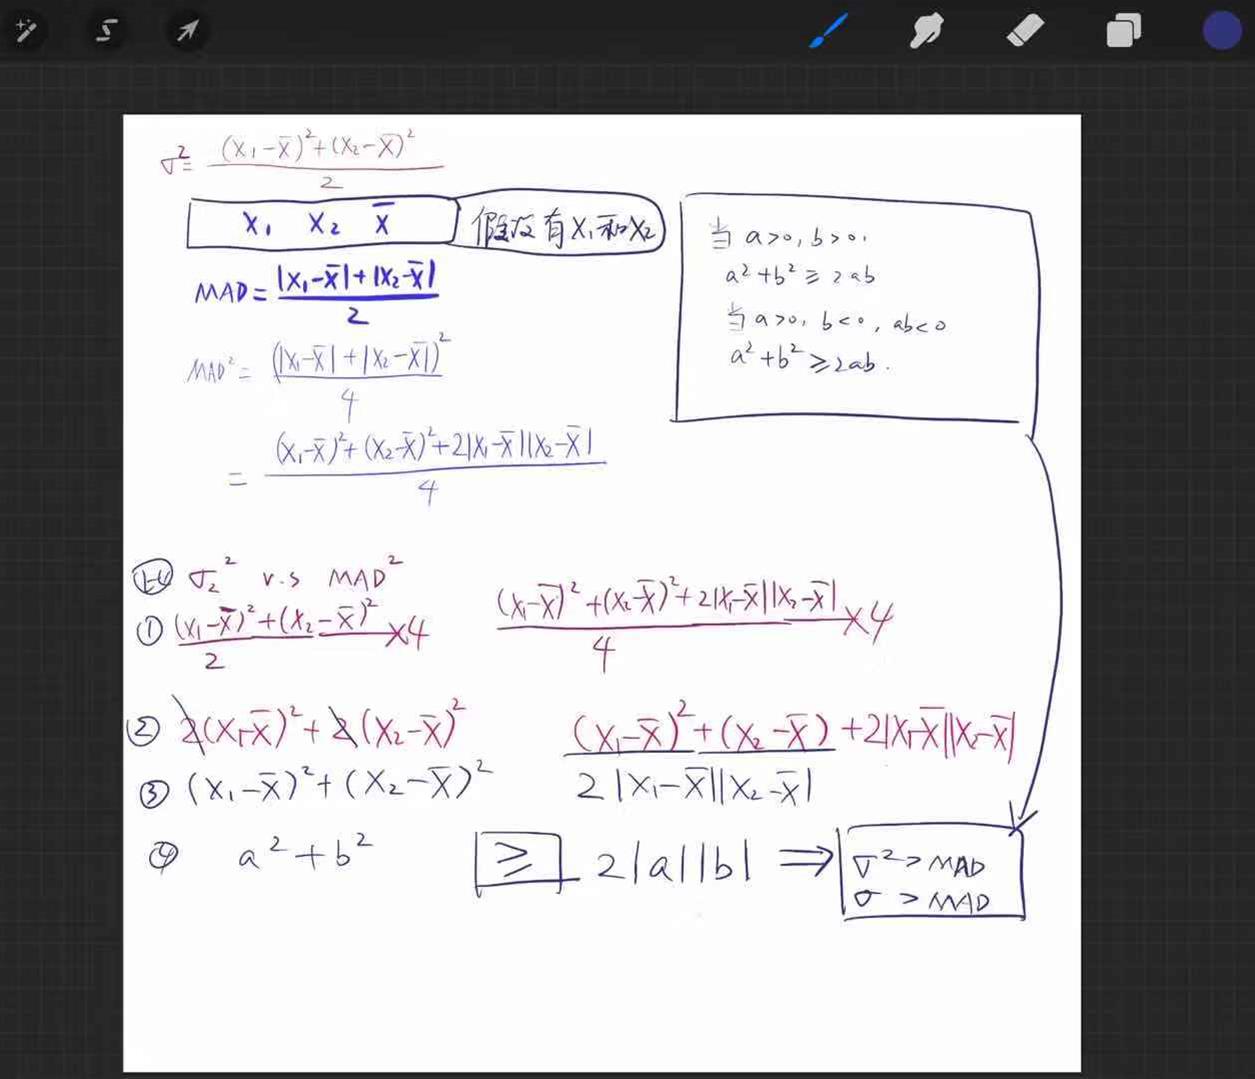 σ² = ((x₁-x̄)²+(x₂-x̄)²)/2
x₁ x₂ x̄ 假设有x₁和x₂
MAD = (|x₁-x̄|+|x₂-x̄|)/2
MAD² = (|x₁-x̄|+|x₂-x̄|)²/4
= ((x₁-x̄)²+(x₂-x̄)²+2|x₁-x̄||x₂-x̄|)/4
当 a>0, b>0,
a²+b² ≥ 2ab
当 a>0, b<0, ab<0
a²+b² ≥ 2ab.
σ₂² v.s MAD²
① ((x₁-x̄)²+(x₂-x̄)²)/2 ×4 ((x₁-x̄)²+(x₂-x̄)²+2|x₁-x̄||x₂-x̄|)/4 ×4
② 2(x₁-x̄)²+2(x₂-x̄)² (x₁-x̄)²+(x₂-x̄)+2|x₁-x̄||x₂-x̄|
③ (x₁-x̄)²+(x₂-x̄)² 2|x₁-x̄||x₂-x̄|
④ a²+b² ≥ 2|a||b| ⇒ σ²>MAD
σ >MAD